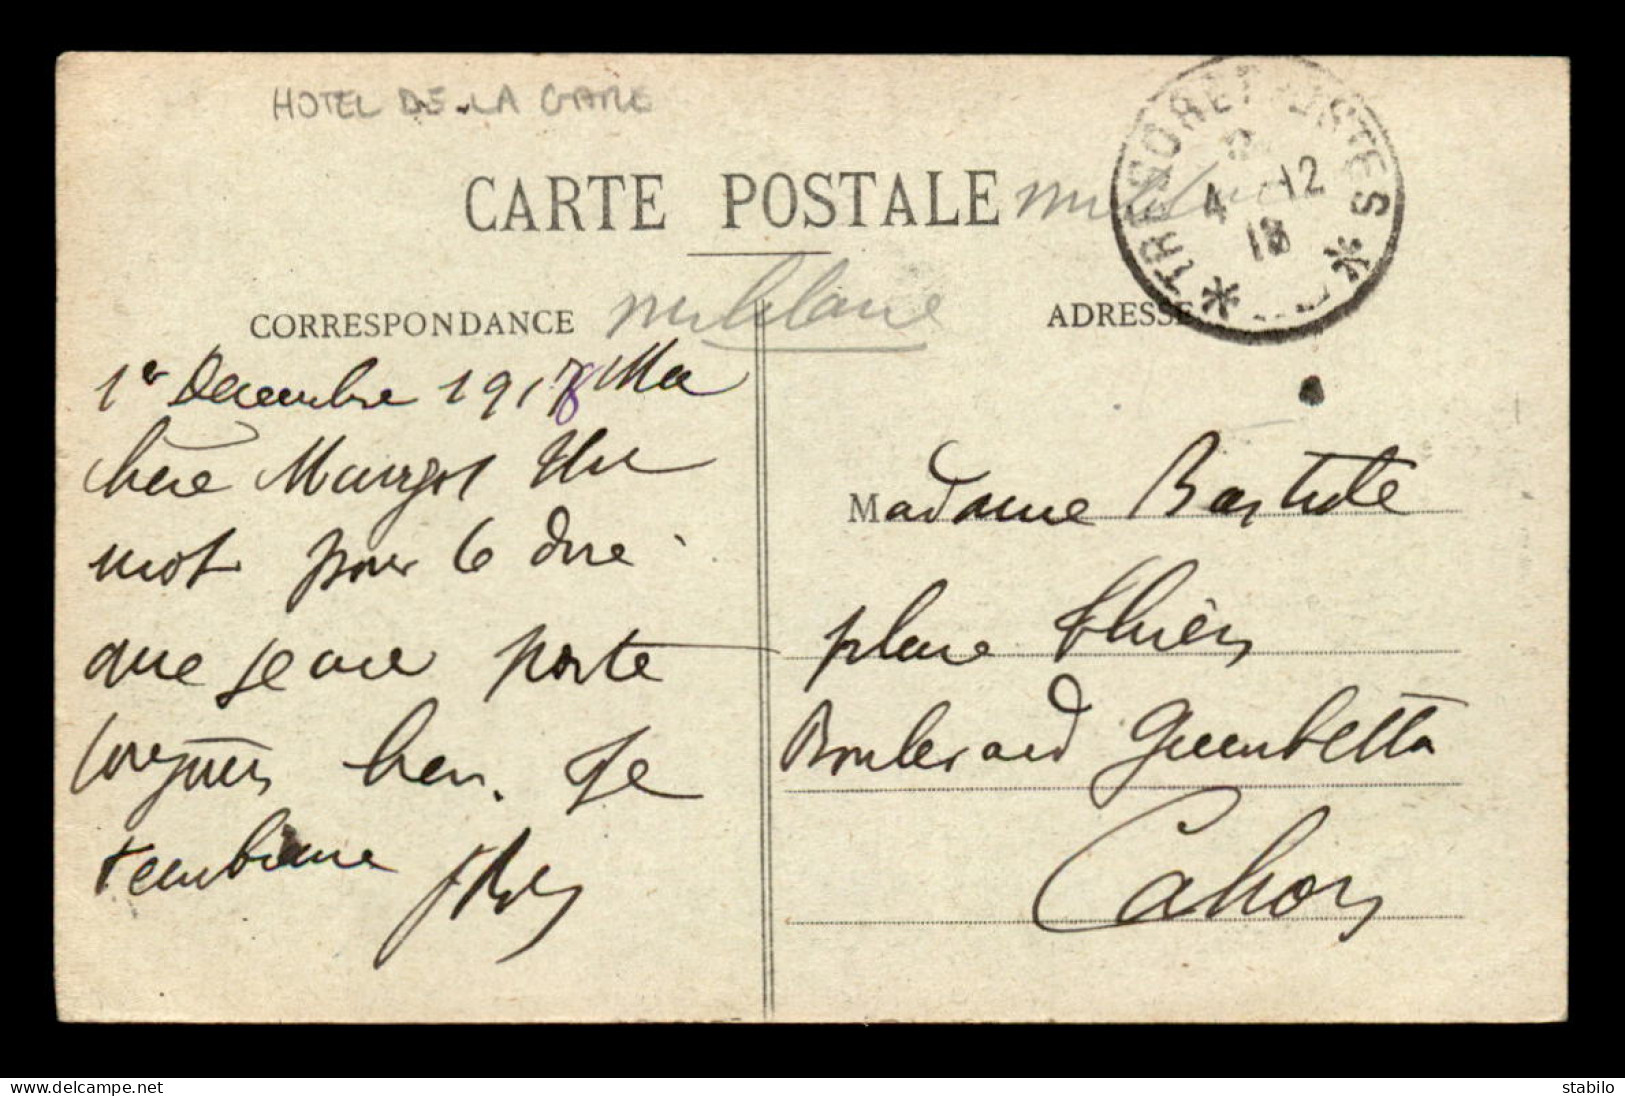 HOTEL DE LA GARE
CARTE POSTALE
TRESOR ET POSTES
4 -12
18
CORRESPONDANCE
ADRESSE
1er Decembre 1918 Ma
chère Margot Un
mot pour te dire
que je me porte
toujours bien. Je
t'embrasse
Madame Bastide
place thiers
Boulevard Gambetta
Cahors
delcampe.net
stabilo